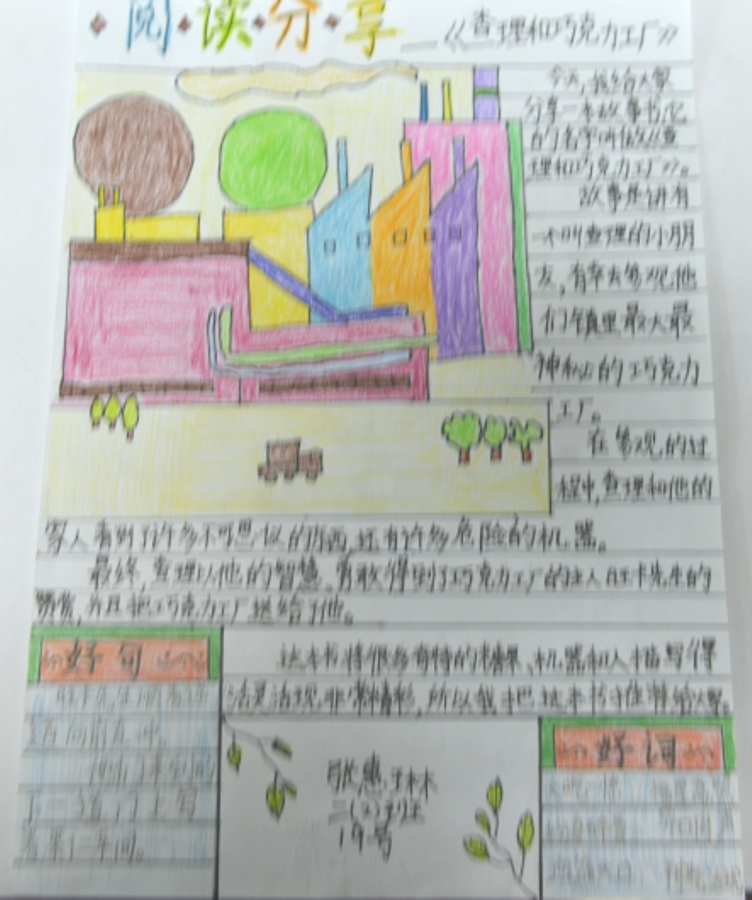 阅读分享——《查理和巧克力工厂》
今天,我给大家
分享一本故事书,它
的名字叫做《查
理和巧克力工厂》。
故事是讲有
一个叫查理的小朋
友,有幸去参观他
们镇里最大最
神秘的巧克力
工厂。
在参观的过
程中,查理和他的
家人看到了许多不可思议的东西,还有许多危险的机器。
最终,查理以他的智慧、勇敢得到了巧克力工厂的主人旺卡先生的
赞赏,并且把巧克力工厂送给了他。
这本书将很多奇特的糖果、机器和人描写得
活灵活现,非常精彩,所以我把这本书推荐给大家。
好句
旺卡先生
方向前左冲
他们来到
了一道门上写
着果仁车间。
张惠琳
二(2)班
19号
好词